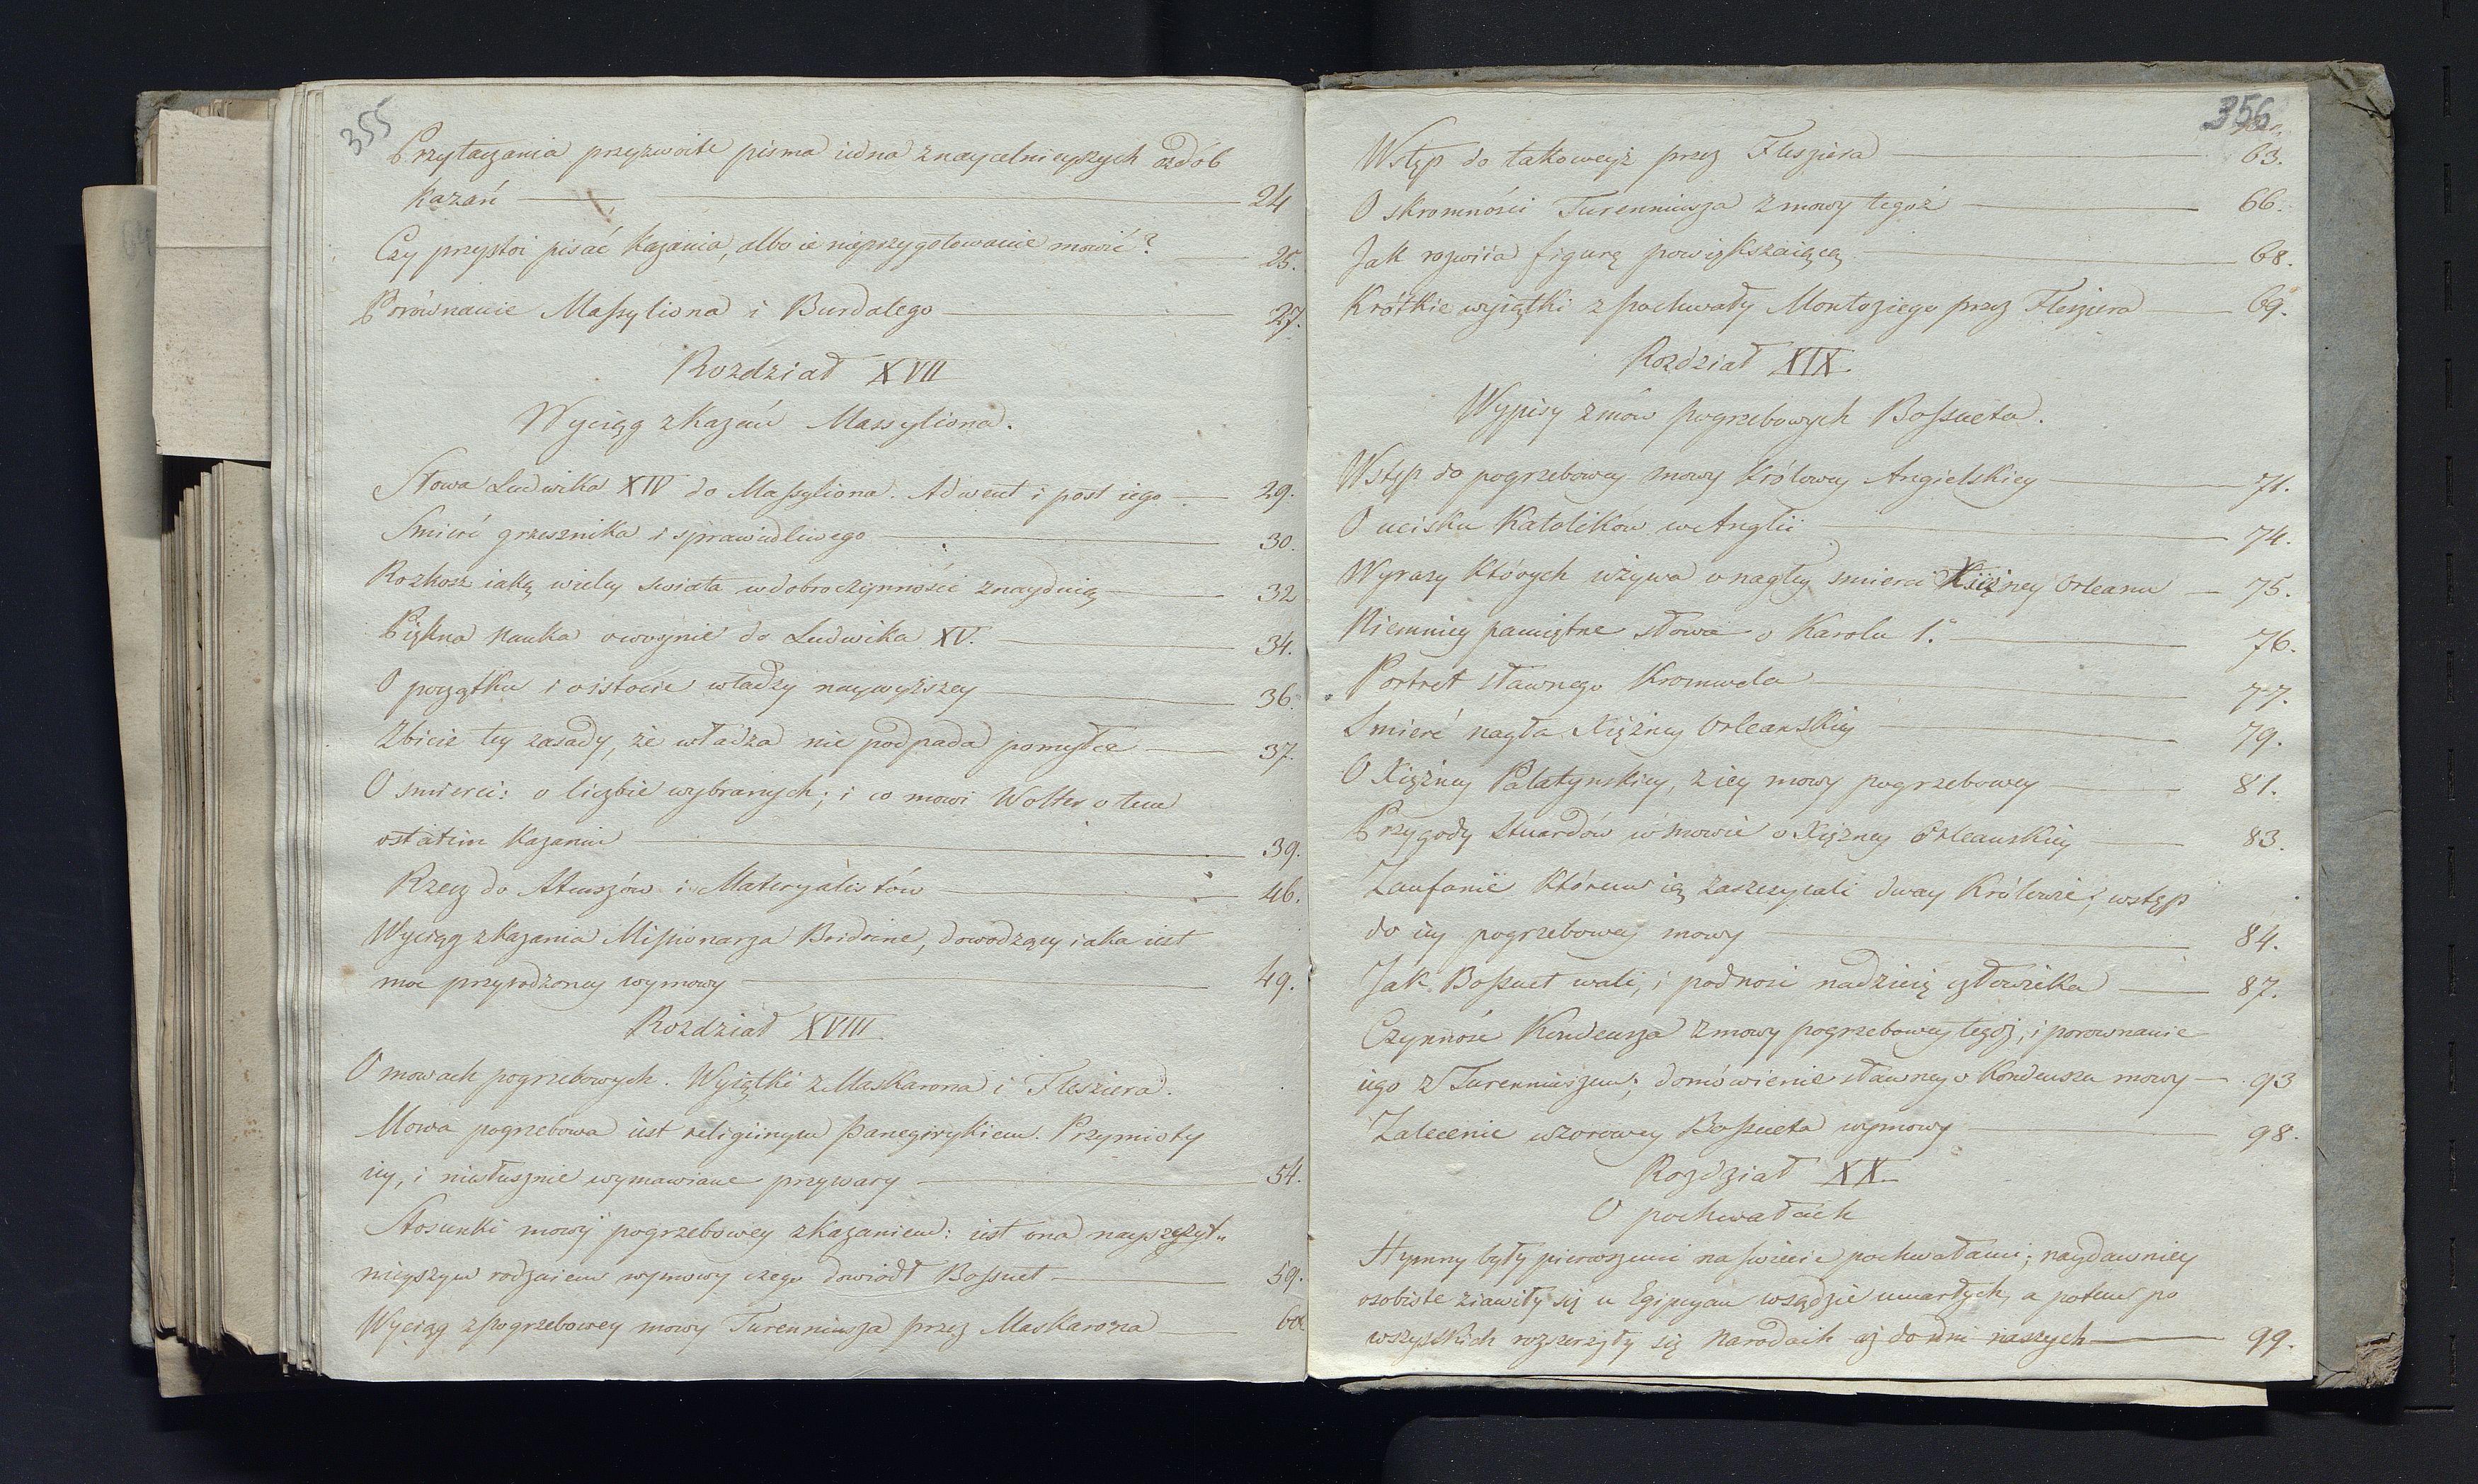 355
Przytaczania przyzwoite pisma iedna znaycelnieyszych ozdób
kazań — 24
Czy przystoi pisać kazania, albo ie nieprzygotowanie mowić? — 25.
Porównanie Massyliona i Burdalego — 27.
Rozdział XVII
Wyciąg z kazań Massyliona.
Słowa Ludwika XIV do Massyliona. Adwent i post iego — 29.
Smierć grzesznika i sprawiedliwego — 30.
Rozkosz iaką wielcy swiata w dobroczynności znayduią — 32
Piękna nauka o woynie do Ludwika XV. — 34.
O początku i o istocie władzy naywyższey — 36.
Zbicie tey zasady, że władza nie podpada pomyłce — 37.
O smierci: o liczbie wybranych; i co mowi Wolter o tem
ostatim kazaniu — 39.
Rzecz do Ateuszów i Materyalistów — 46.
Wyciąg z kazania Missionarza Bridaine, dowodzący iaka iest
moc przyrodzoney wymowy — 49.
Rozdział XVIII.
O mowach pogrzebowych. Wyiątki z Maskarona i Flesziera.
Mowa pogrzebowa iest religiinym panegirykiem. Przymioty
iey, i niesłusznie wymawiane przywary — 54.
Stosunki mowy pogrzebowey z kazaniem: iest ona nayszczyt„
nieyszym rodzaiem wymowy czego dowiódł Bossuet — 59.
Wyciąg z pogrzebowey mowy Turenniusza przez Maskarona — 60
356
Wstęp do takoweyż przez Flesziera — 63.
O skromności Turenniusza z mowy tegoż — 66.
Jak rozwiia figurę powiększaiącą — 68.
Krótkie wyiątki z pochwały Montoziego przez Flesziera — 69.
Rozdział XIX.
Wypisy z mów pogrzebowych Bossueta.
Wstęp do pogrzebowey mowy Królowey Angielskiey — 71.
O ucisku Katolików w Anglii — 74.
Wyrazy których używa o nagłey smierci Xiężney Orleanu — 75.
Niemniey pamiętne słowa o Karolu 1. — 76.
Portret sławnego Kromwela — 77.
Smierć nagła Xiężney Orleanskiey — 79.
O Xiężney Palatynskiey, z iey mowy pogrzebowey — 81.
Przygody Stuardów w mowie o Xiężney Orleanskiey — 83.
Zaufanie którem ią zaszczycali dway Królowie; wstęp
do iey pogrzebowey mowy — 84.
Jak Bossuet wali, i podnosi nadzieię człowieka — 87.
Czynność Kondeusza z mowy pogrzebowey tegoż, i porownanie
iego z Turenniuszem; domówienie sławney o Kondeuszu mowy — 93
Zalecenie wzorowey Bossueta wymowy — 98.
Rozdział XX.
O pochwałach
Hymny były pierwszemi na swiecie pochwałami; naydawniey
osobiste ziawiły się u Egipcyan wsądzie umarłych, a potem po
wszystkich rozszerzyły się narodach aż do dni naszych — 99.